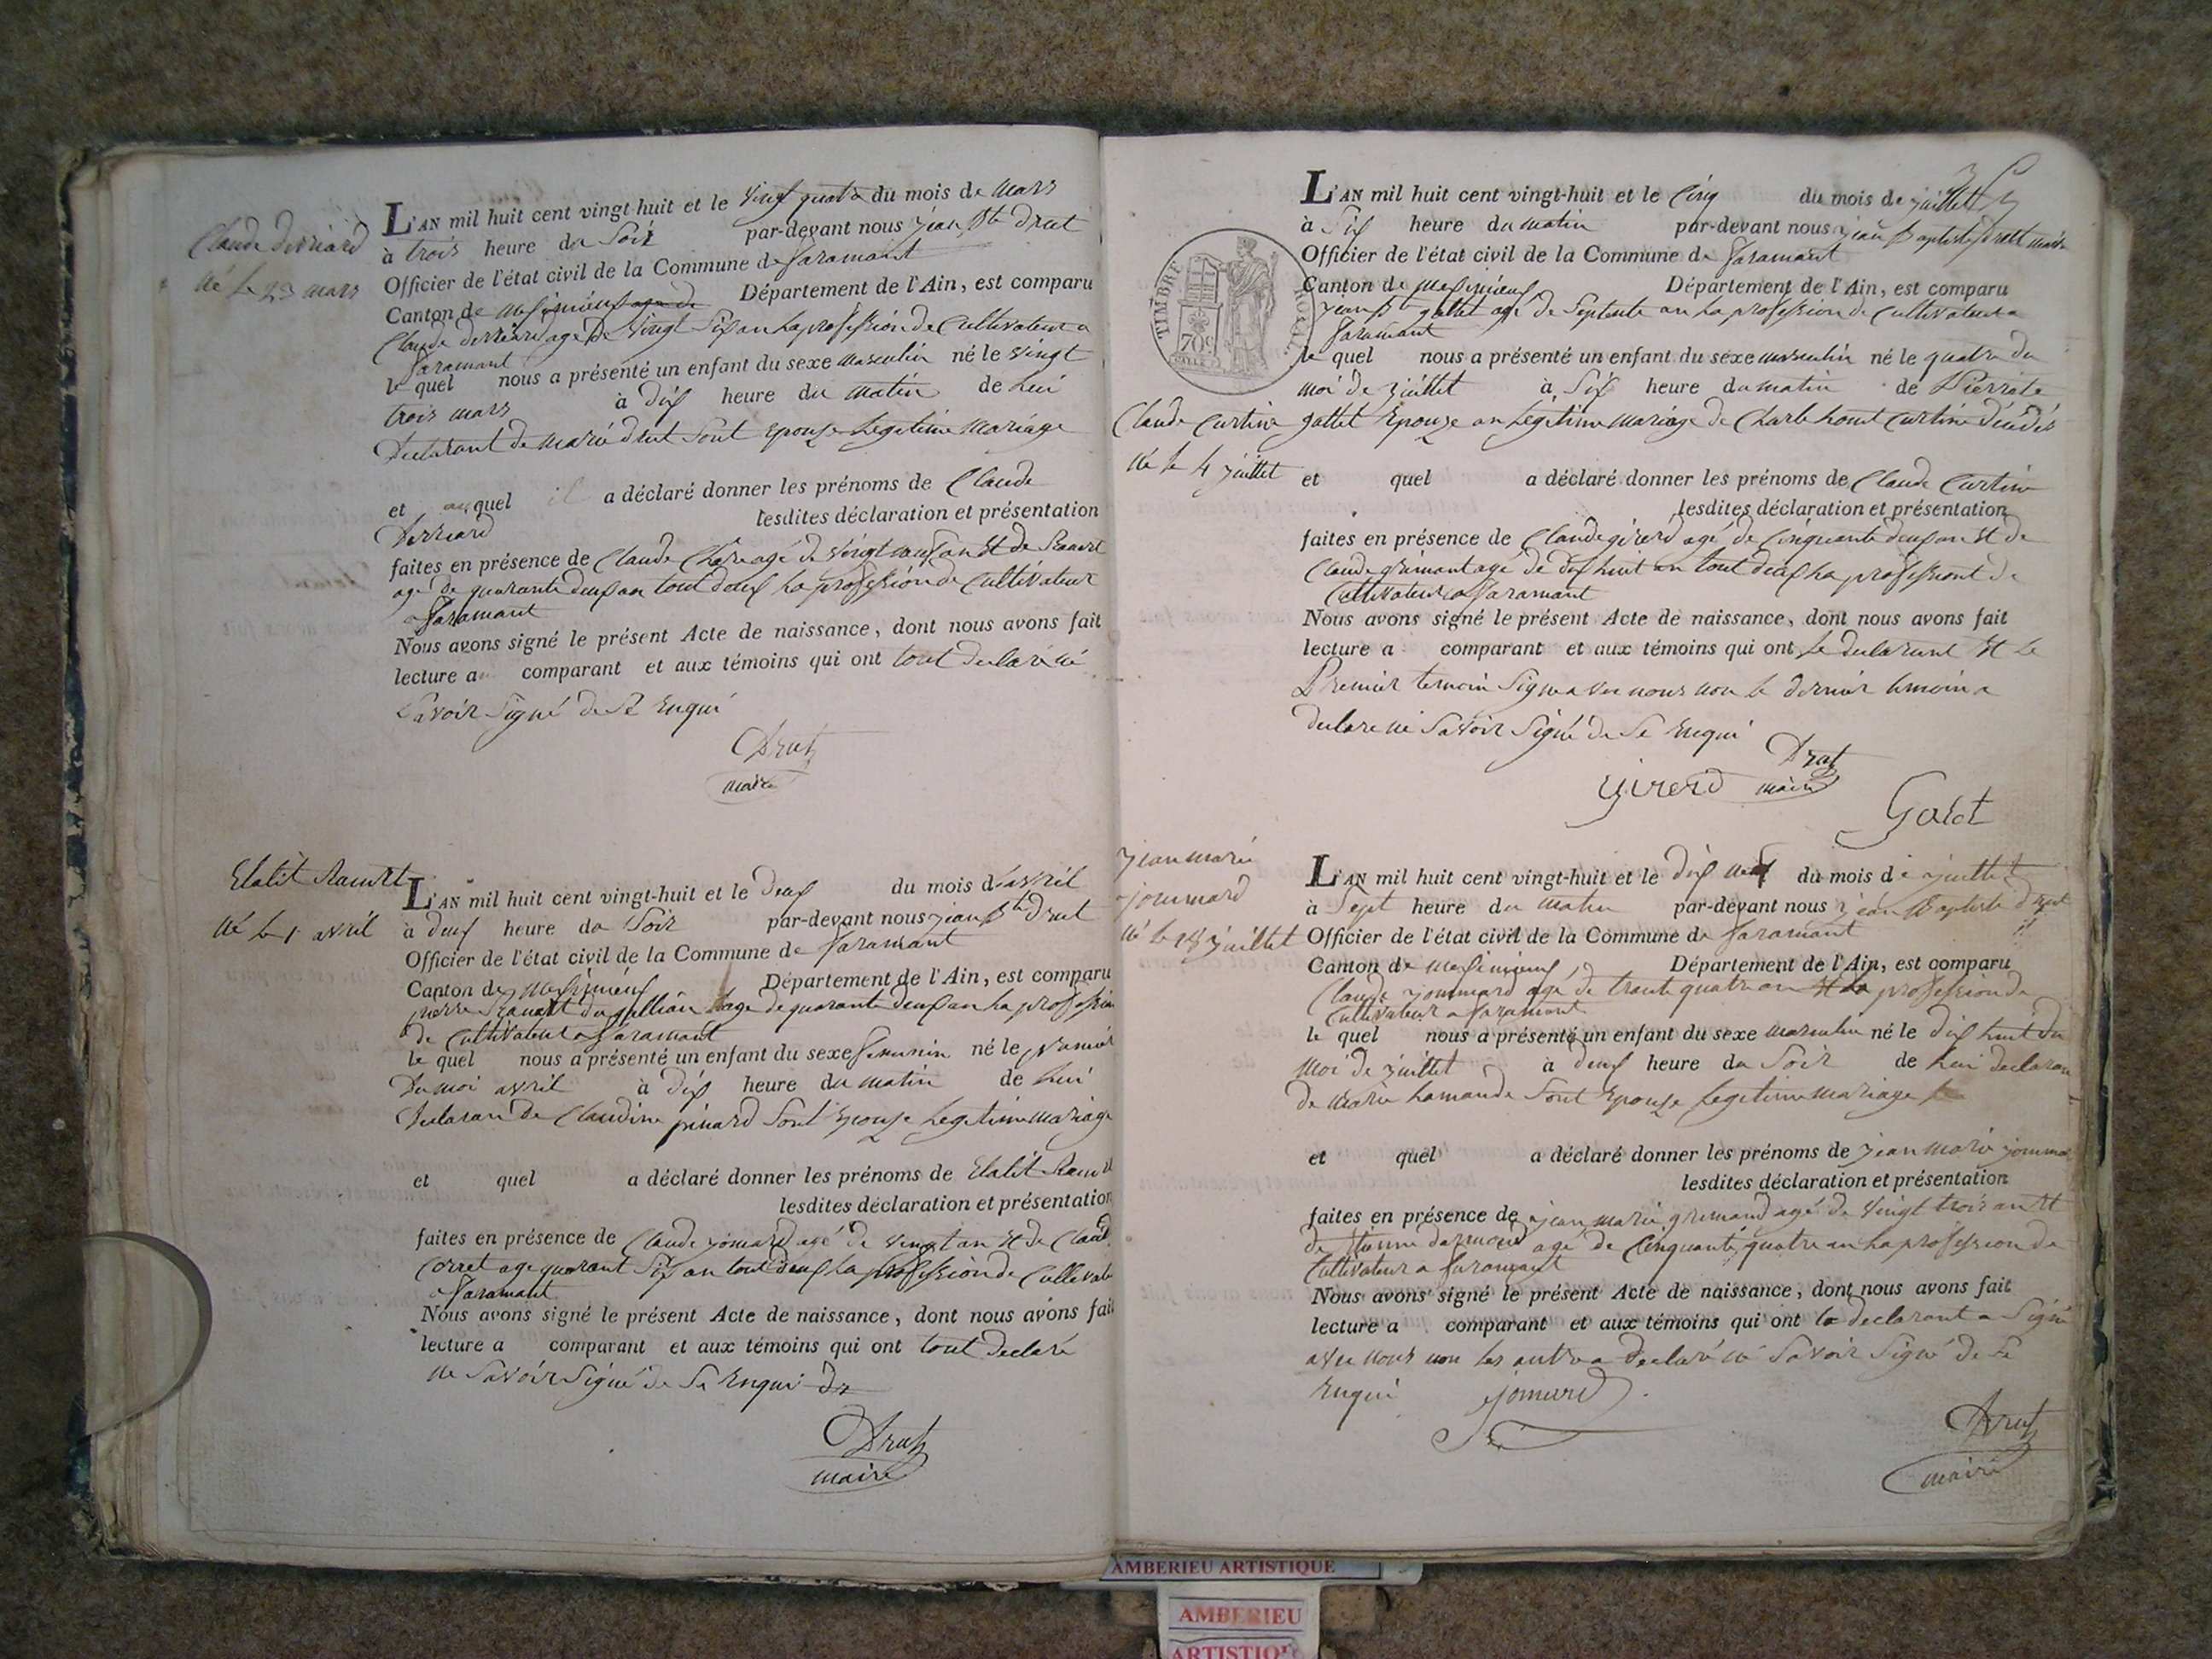 Claude derriard
né le 23 mars
L'AN mil huit cent vingt-huit et le vingt quatre du mois de mars
à trois heure du Soir par-devant nous jean Bte drut
Officier de l'état civil de la Commune de faramant
Canton de Département de l'Ain, est comparu
Claude derriard age de vingt Six an la profession de Cultivateur a
faramant
le quel nous a présenté un enfant du sexe masculin né le vingt
trois mars à dix heure du matin de lui
Declarant de marie drut Sont Epouse Legitime mariage
et auquel il a déclaré donner les prénoms de Claude
Derriard lesdites déclaration et présentation
faites en présence de Claude agé de vingt an Et de
agé de quarante deux an tout deux la profession de Cultivateur
a faramant
Nous avons signé le présent Acte de naissance, dont nous avons fait
lecture au comparant et aux témoins qui ont tout declaré né
Savoir Signé de Se Enqui
Drut
maire
né le 1 avril
L'AN mil huit cent vingt-huit et le deux du mois d'avril
à deux heure du Soir par-devant nous jean Bte Drut
Officier de l'état civil de la Commune de faramant
Canton de Département de l'Ain, est comparu
pierre age de quarante deux an la profession
de Cultivateur a faramant
le quel nous a présenté un enfant du sexe femninin né le premier
Du moi avril à dix heure du matin de lui
Declaran de Claudine pinard Sont Epouse Legitime mariage
et quel a déclaré donner les prénoms de
lesdites déclaration et présentation
faites en présence de Claude jomard agé de vingt an Et de Claude
Corret age quarant Six an tout deux la profession de Cultivate
a faramant
Nous avons signé le présent Acte de naissance, dont nous avons fait
lecture a comparant et aux témoins qui ont tout declaré
ne Savoir Signé de Se Enqui
Drut
maire
TIMBRE ROYAL
70c
L'AN mil huit cent vingt-huit et le Cinq du mois de juillet
à Six heure du matin par-devant nous jean Baptiste drutt maire
Officier de l'état civil de la Commune de faramant
Canton de Département de l'Ain, est comparu
jean Bte gallet agé de Septente an la profession de Cultivateur a
faramant
le quel nous a présenté un enfant du sexe masculin né le quatre du
moi de juillet à Six heure du matin de Pierrete
Claude Curtine
né le 4 juillet
gallet Epouze an Legitime mariage de Charle Curtine
et quel a déclaré donner les prénoms de Claude Curtine
lesdites déclaration et présentation
faites en présence de Claude girerd agé de Cinquante deux an Et de
Claude grimant agé de dix huit an tout deux la professiont de
Cultivateur a faramant
Nous avons signé le présent Acte de naissance, dont nous avons fait
lecture a comparant et aux témoins qui ont Le declarant Et Le
Premier temoin Signe avec nous non le dernier temoin a
declare né Savoir Signé de Se Enqui
Drut
maire
Girerd
Galet
jean marie
jommard
né le 18 juillet
L'AN mil huit cent vingt-huit et le dix neuf du mois de juillet
à Sept heure du matin par-devant nous jean Baptiste drut
Officier de l'état civil de la Commune de faramant
Canton de Département de l'Ain, est comparu
Claude jommard age de trante quatre an Et La profession de
Cultivateur a faramant
le quel nous a présenté un enfant du sexe masculin né le dix huit du
moi de juillet à deux heure du Soir de Lui declaran
de marie Lamande Sont Epouze Legitime mariage
et quel a déclaré donner les prénoms de jean marie jommar
lesdites déclaration et présentation
faites en présence de jean marie grimand agé de vingt trois an Et
de agé de Cinquante quatre an La profession de
Cultivateur a faramant
Nous avons signé le présent Acte de naissance, dont nous avons fait
lecture a comparant et aux témoins qui ont le declarant a Signé
avec nous non les autre a declaré né Savoir Signé de Se
Enqui jomard
Drut
maire
AMBERIEU ARTISTIQUE
AMBERIEU
ARTISTIQUE